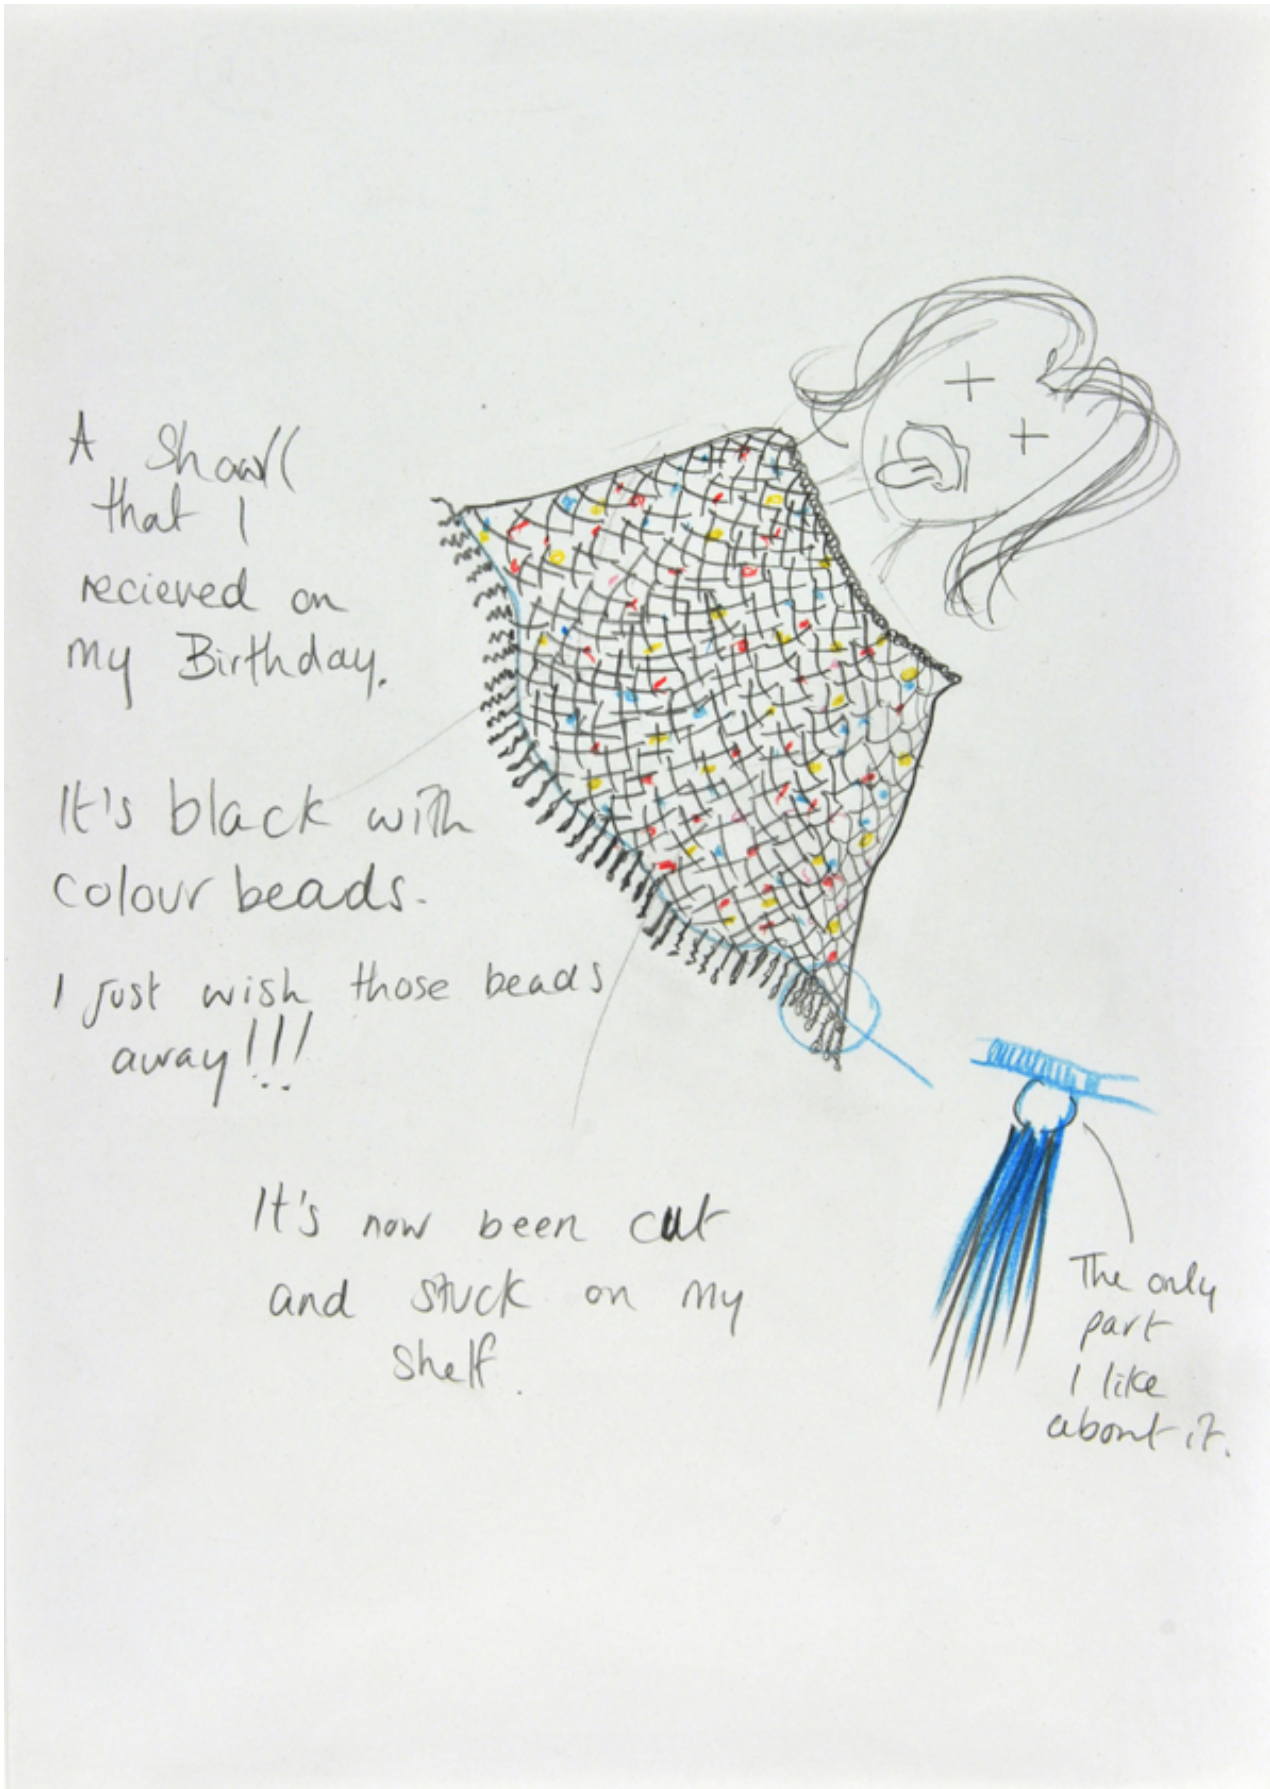 A Shawl
that I
recieved on
my Birthday.
It's black with
colour beads.
I just wish those beads
away!!!
It's now been cut
and stuck on my
shelf.
The only
part
I like
about it.